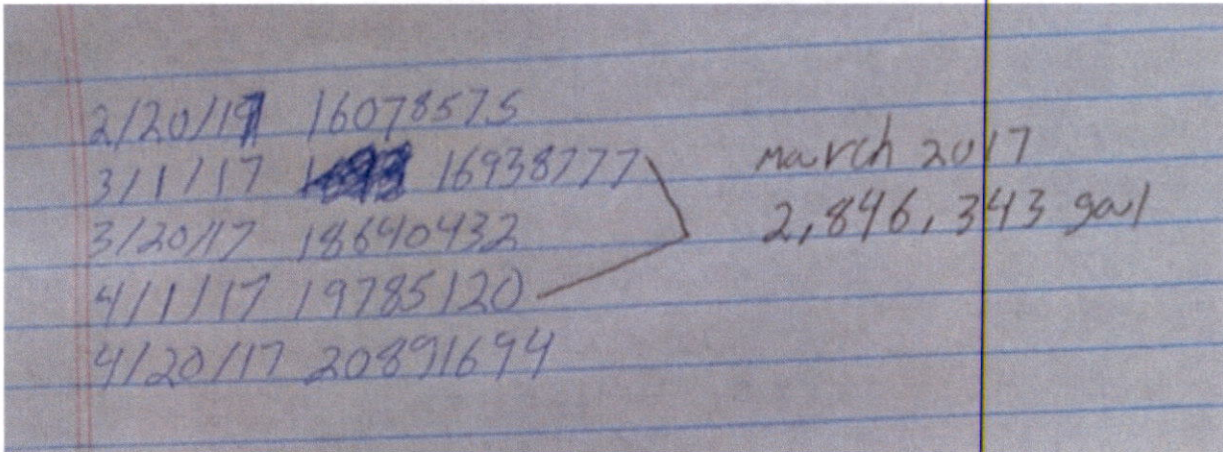 2/20/17 16078575
3/1/17 16938777
3/20/17 18640432
4/1/17 19785120
4/20/17 20891694
march 2017
2,846,343 gal